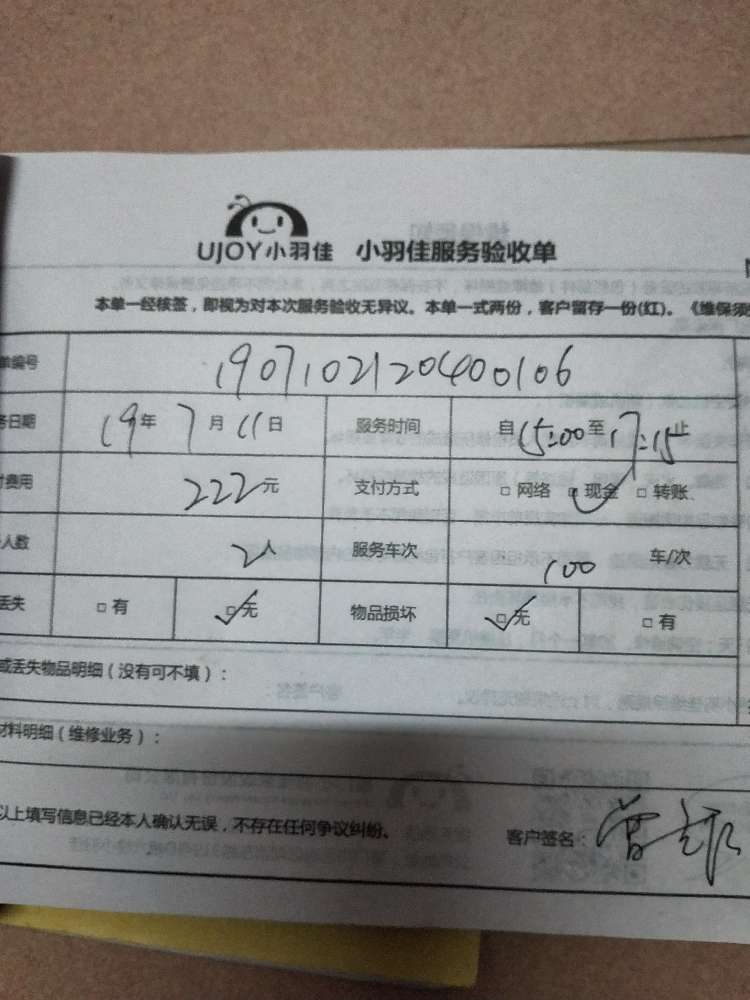 UJOY小羽佳 小羽佳服务验收单
本单一经核签，即视为对本次服务验收无异议。本单一式两份，客户留存一份(红)。《维保须
单编号 190710212040010​6
务日期 19年 7月 11日 服务时间 自15:00至17:15止
付费用 222元 支付方式 □网络 □现金 □转账
人数 2人 服务车次 100 车/次
丢失 □有 □无 物品损坏 □无 □有
或丢失物品明细（没有可不填）：
材料明细（维修业务）：
以上填写信息已经本人确认无误，不存在任何争议纠纷、 客户签名：